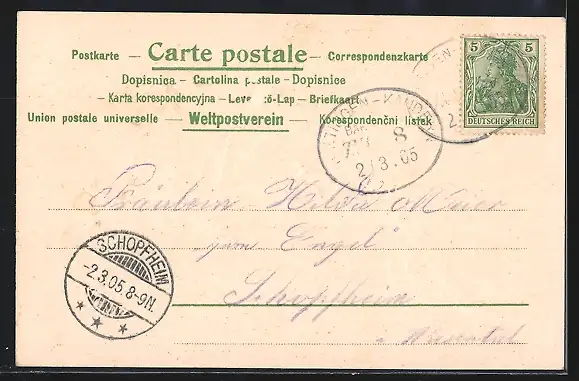 Postkarte — Carte postale — Correspondenzkarte
Dopisnica — Cartolina postale — Dopisnice
Karta korespondencyjna — Levelező-Lap — Briefkaart
Union postale universelle — Weltpostverein — Korespondenční listek
5 5
DEUTSCHES REICH
KANDERN
BAHN
ZUG 8
2/3.05
Fräulein Hilda Maier
"zum Engel"
Schopfheim
Wiesental
SCHOPFHEIM
-2.3.05.8-9N.